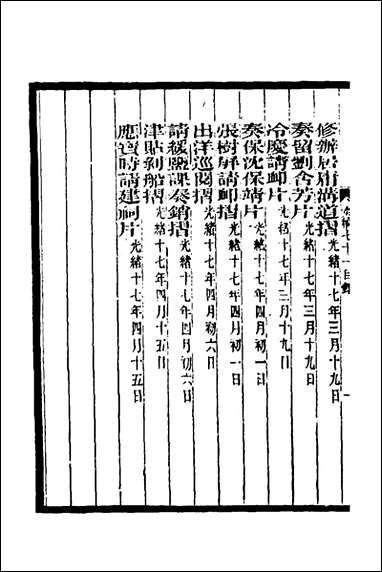 奏稿七十一目錄 一
修辦居庸溝道摺光緒十七年三月十九日
奏留劉含芳片光緒十七年三月十九日
冷慶請卹片光緒十七年三月十九日
奏保沈保靖片光緒十七年四月初一日
張樹屏請卹摺光緒十七年四月初一日
出洋巡閱摺光緒十七年四月初六日
請緩鹽課奏銷摺光緒十七年四月初六日
津貼剝船摺光緒十七年四月十五日
應道時請建祠片光緒十七年四月十五日